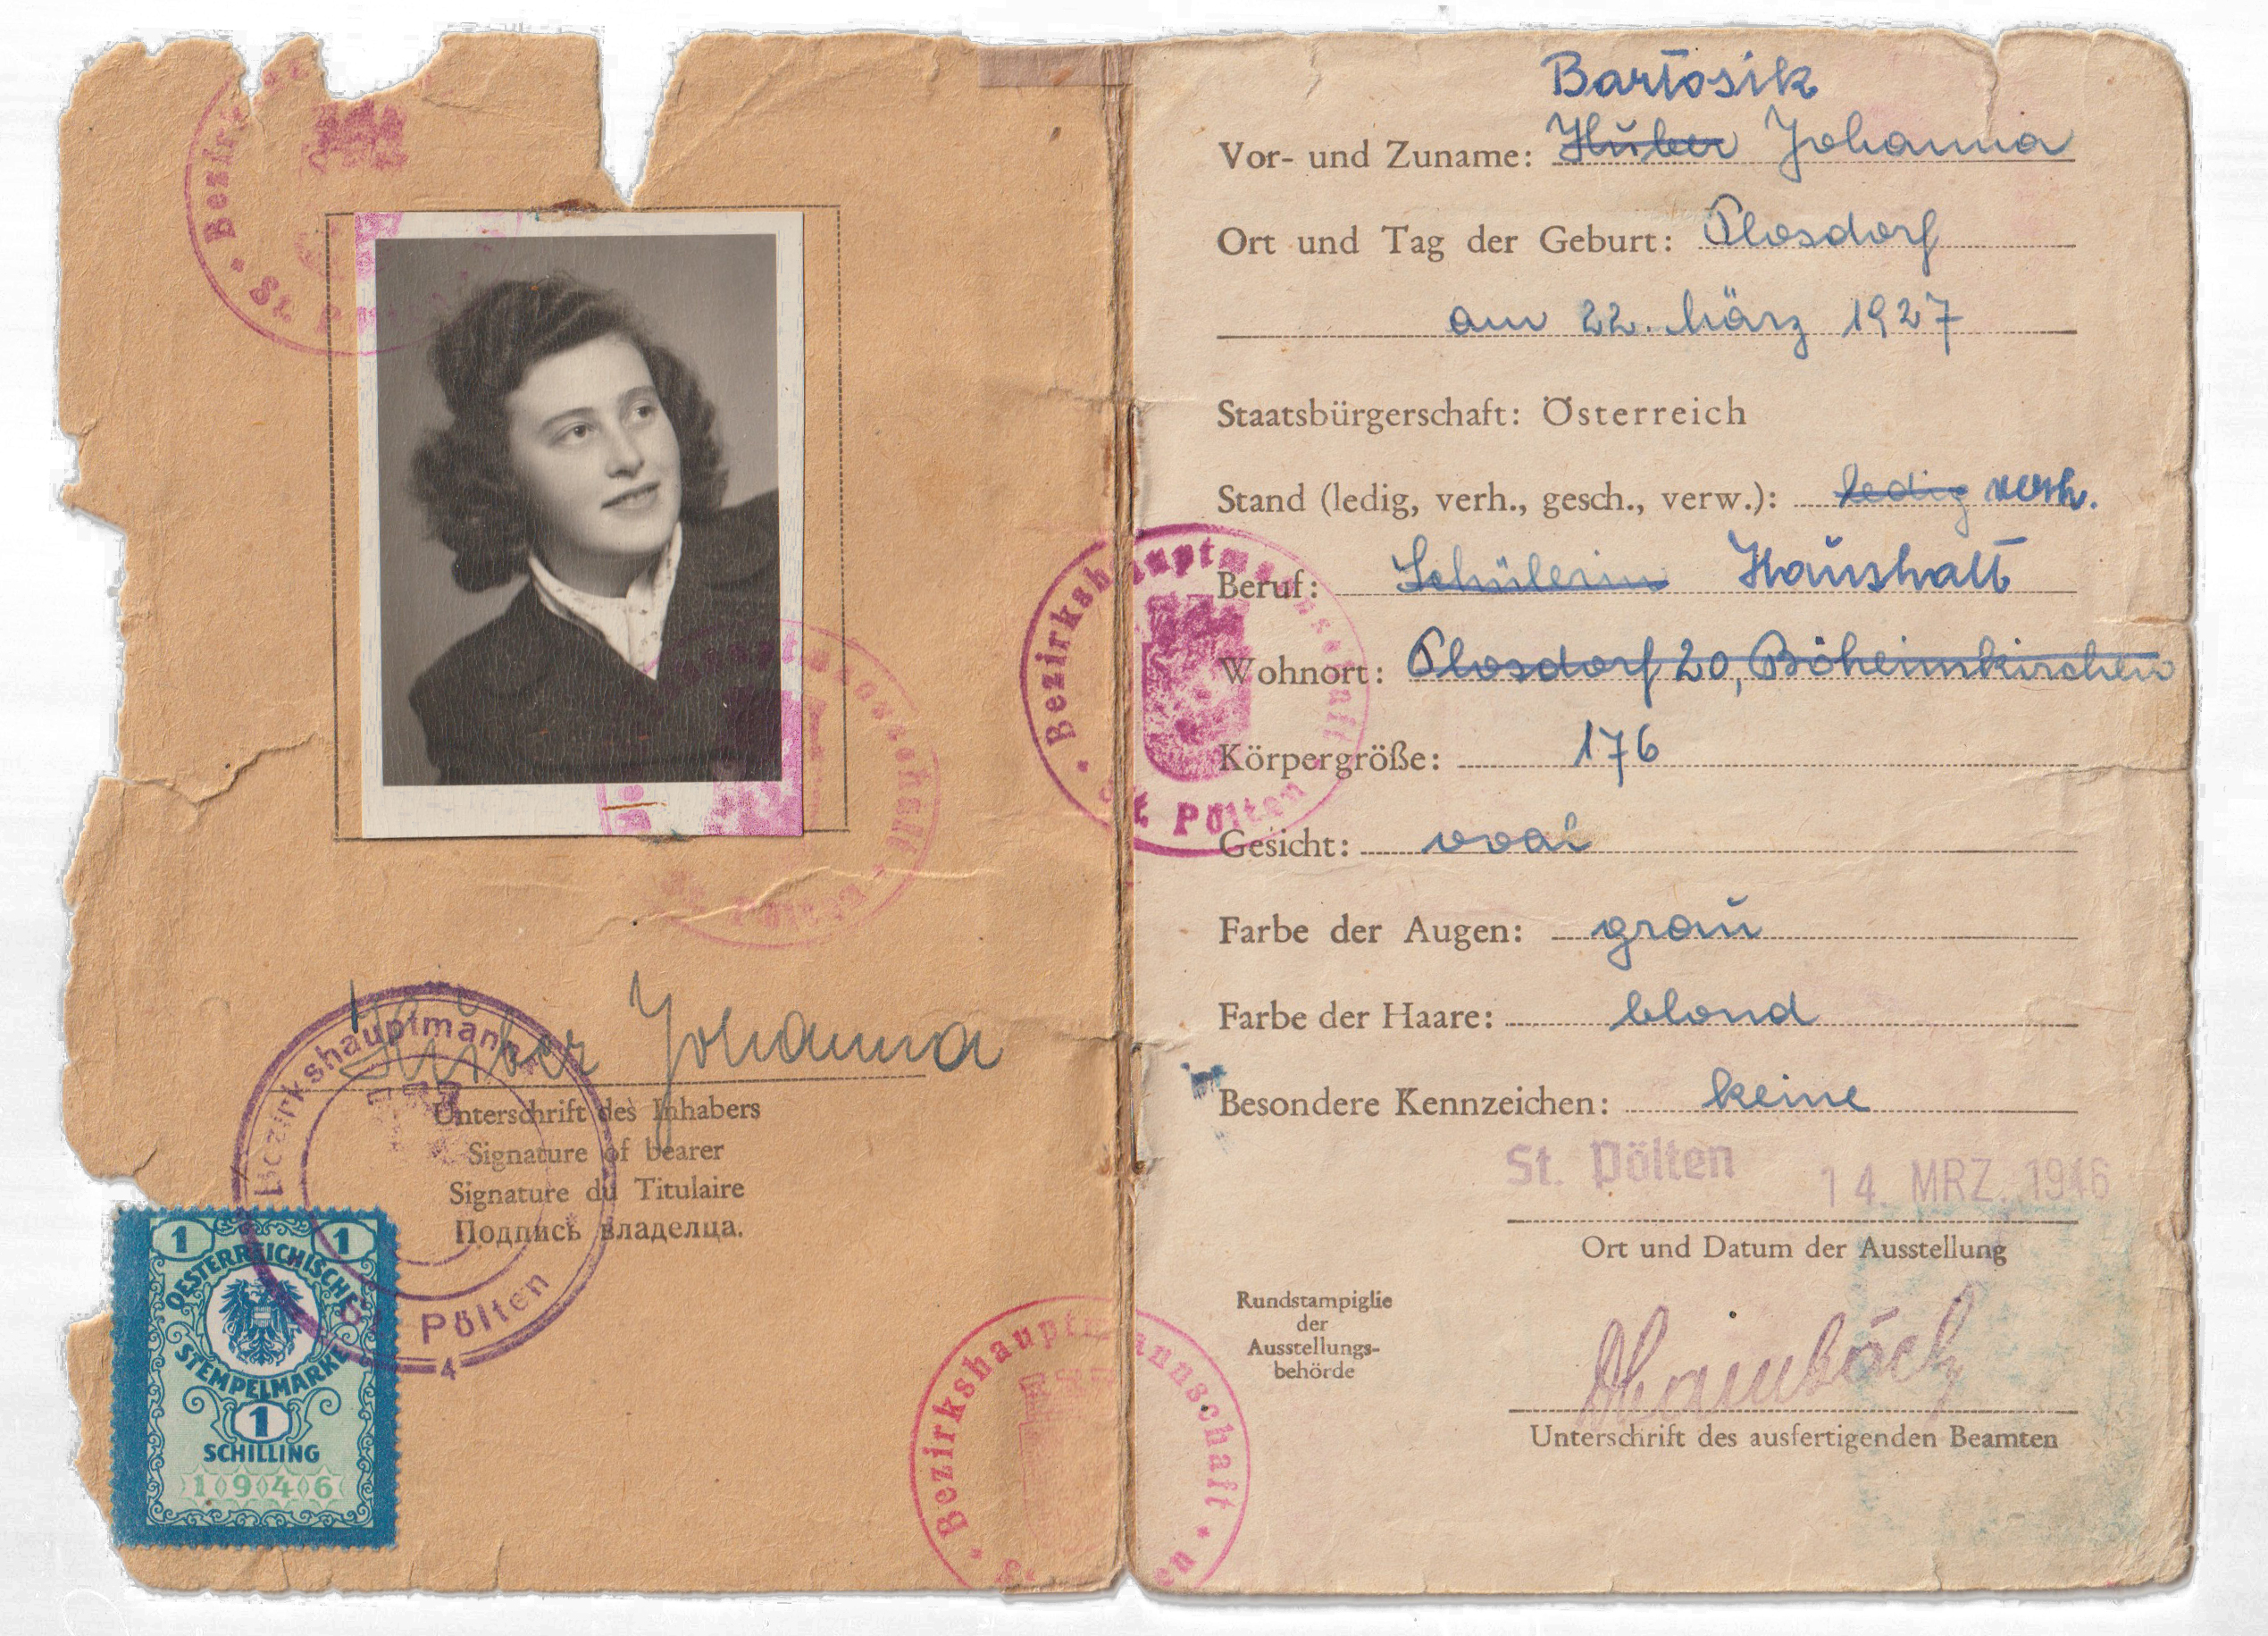 Bezirkshauptmannschaft
St. Pölten
Huber Johanna
Unterschrift des Inhabers
Signature of bearer
Signature du Titulaire
Подпись владельца.
Bezirkshauptmannschaft
St. Pölten
4
1 1
OESTERREICHISCHE
STEMPELMARKE
1
SCHILLING
1946
Bezirkshauptmannschaft
Bartosik
Vor- und Zuname: Huber Johanna
Ort und Tag der Geburt: Plosdorf
am 22. März 1927
Staatsbürgerschaft: Österreich
Stand (ledig, verh., gesch., verw.): ledig verh.
Beruf: Schülerin Haushalt
Wohnort: Plosdorf 20, Böheimkirchen
Körpergröße: 176
Gesicht: oval
Farbe der Augen: grau
Farbe der Haare: blond
Besondere Kennzeichen: keine
St. Pölten 14. MRZ. 1946
Ort und Datum der Ausstellung
Rundstampiglie
der
Ausstellungs-
behörde
Unterschrift des ausfertigenden Beamten
Bezirkshauptmannschaft
St. Pölten